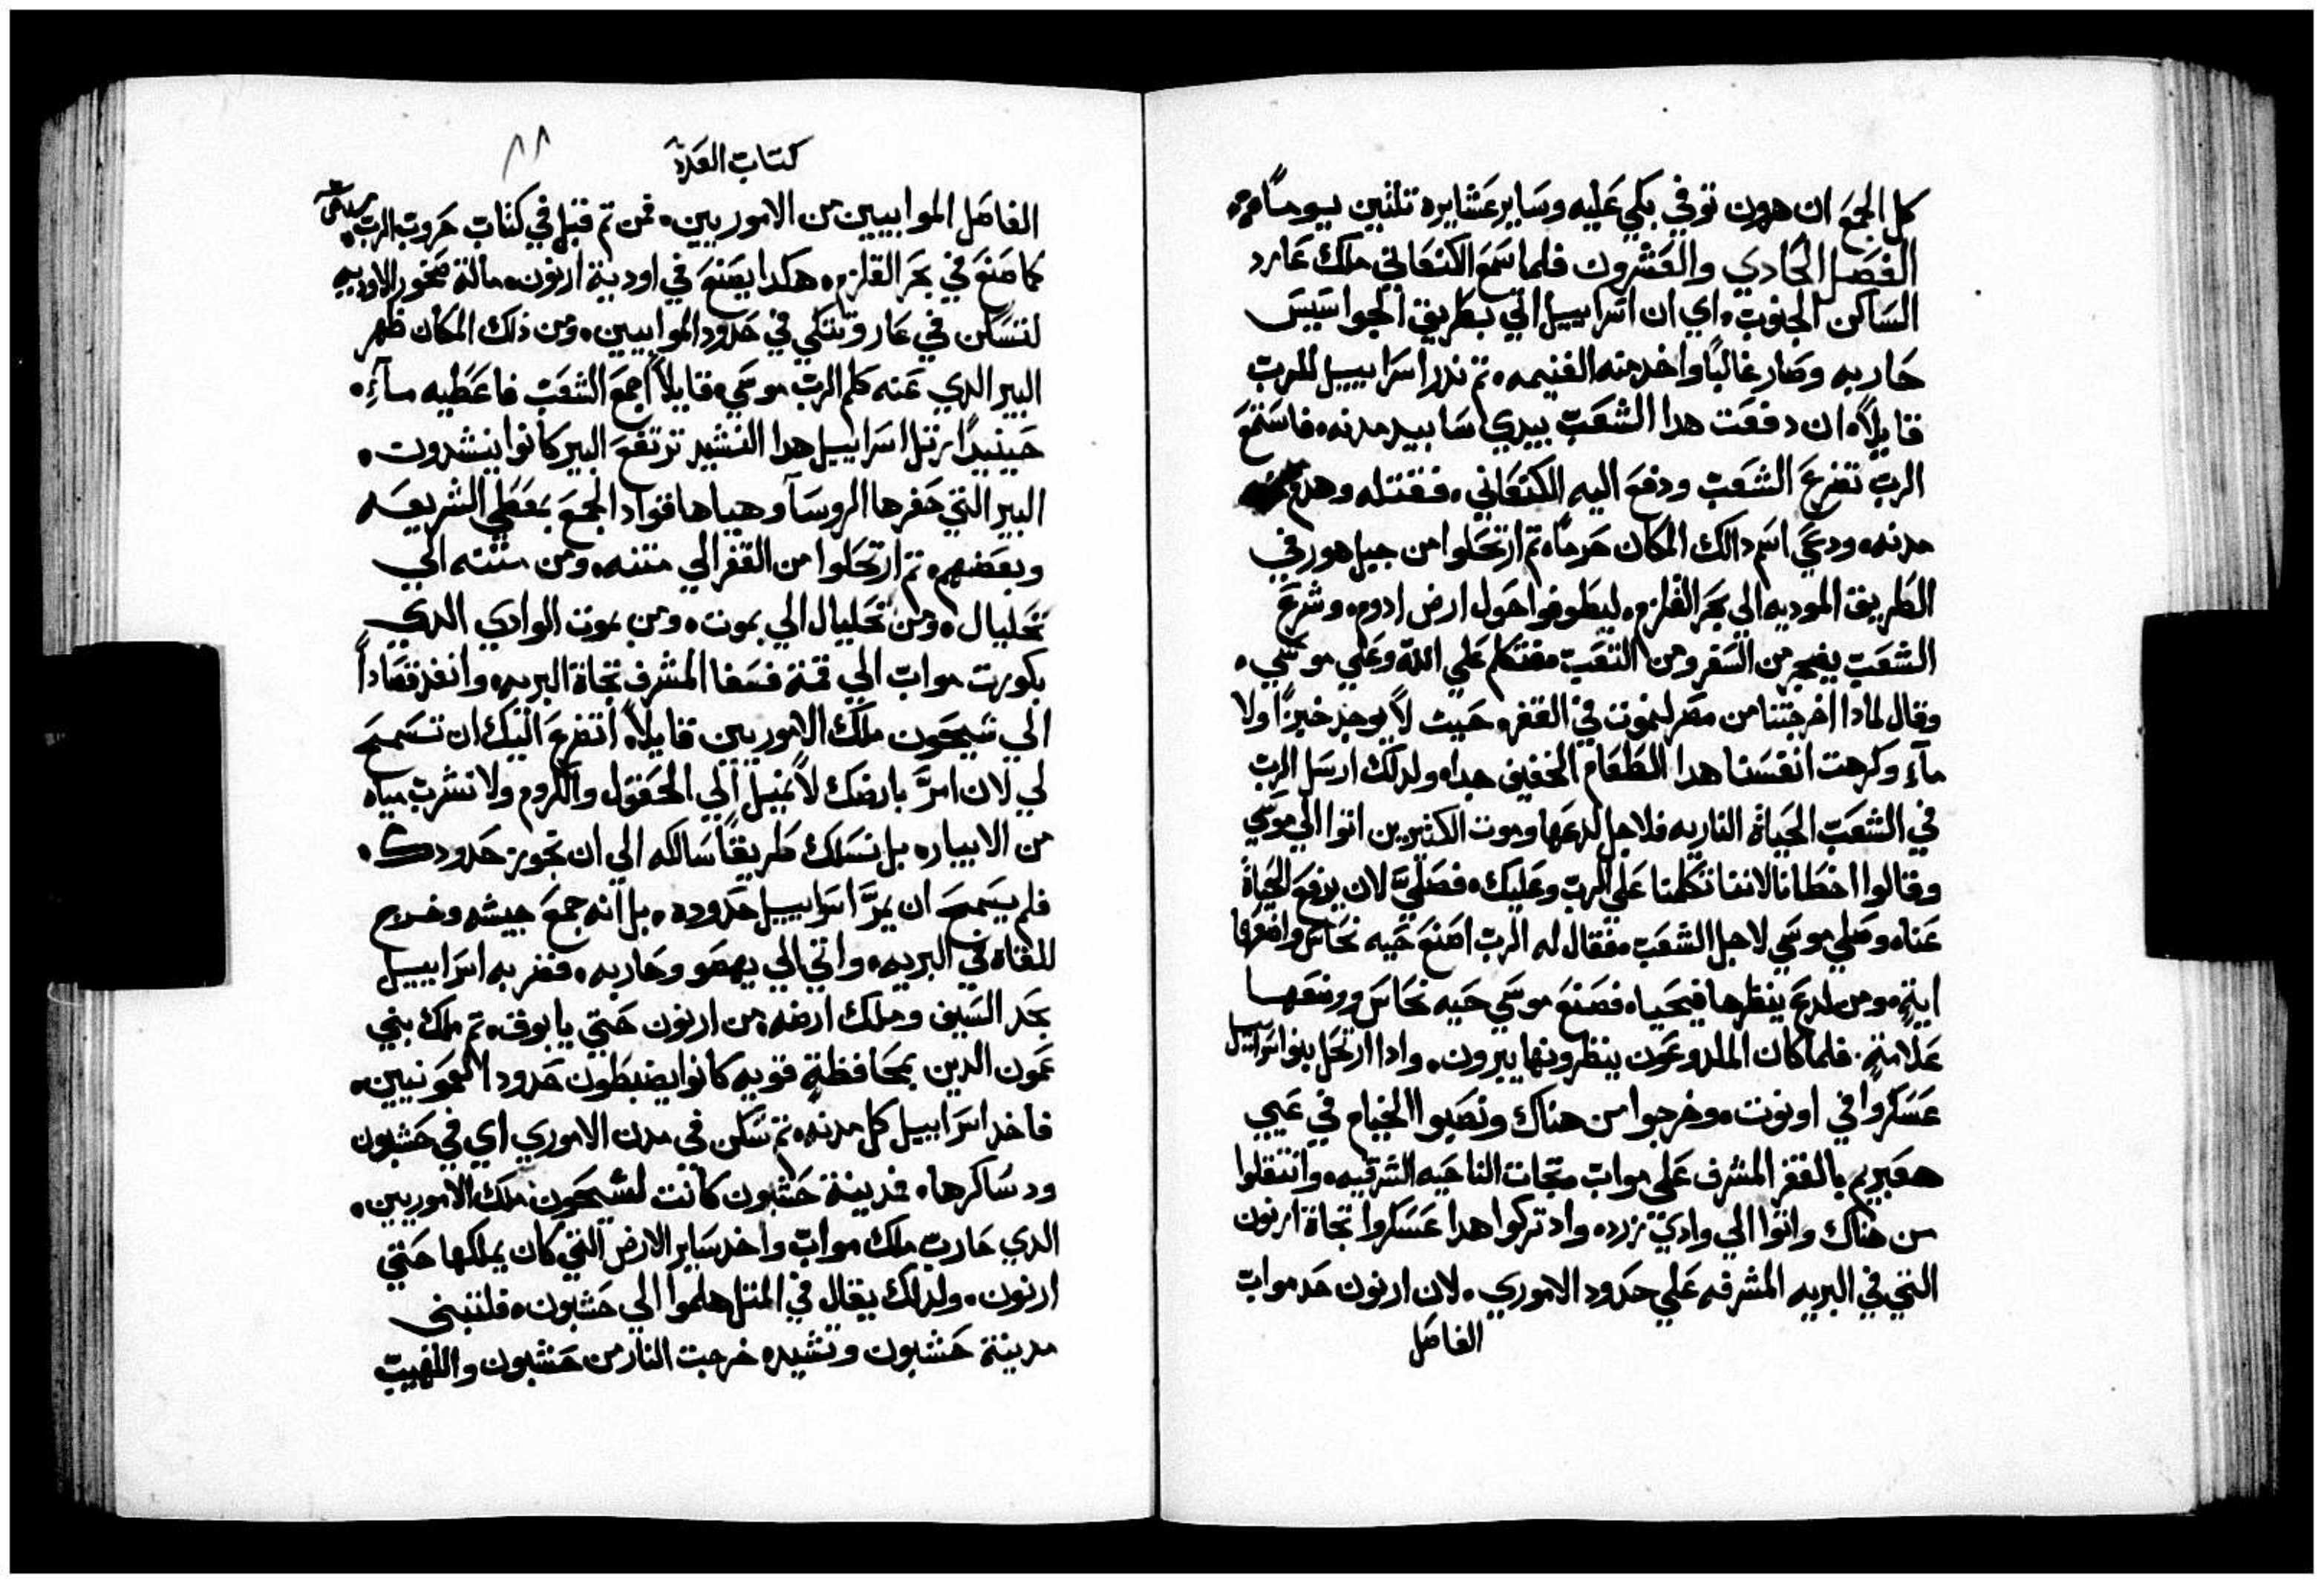 كل الجمع ان هرون توفي بكي عليه وساير عشايره تلتين يوماً
الفصل الحادي والعشرون فلما سمع الكنعاني ملك عارد
الساكن الجنوب، اي ان اسراييل اتي بطريق الجواسيس
حاربه وصار غالباً واخد منه الغنيمه، تم ندر اسراييل للرب
قايلاً، ان دفعت هدا الشعب بيدي سابيد مدنه، فاستمع
الرب تضرع الشعب ودفع اليه الكنعاني، فقتله وهدم
مدنه، ودعي اسم دالك المكان حرماً، تم ارتحلوا من جبل هور في
الطريق الموديه الي بحر القلزم، ليطوفوا حول ارض ادوم، وشرع
الشعب يضجر من السفر ومن التعب، فتكلم علي الله وعلي موسي،
وقال لمادا اخرجتنا من مصر لنموت في القفر، حيث لا يوجد خبزاً ولا
مآء وكرهت انفسنا هدا الطعام الخفيف جدا، ولدلك ارسل الرب
في الشعب الحياة الناريه فلاجل لدعها وموت الكتيرين اتوا الي موسي
وقالوا اخطانا لاننا تكلمنا علي الرب وعليك، فصليّ لان يرفع الحياة
عنا، وصلي موسي لاجل الشعب، فقال له الرب اصنع حيه نحاس واضعها
ايةٍ، ومن لدع ينظرها فيحيا، فصنع موسي حيه نحاس ووضعها
علامةٍ. فلما كان الملدوعون ينظرونها يبرون، وادا ارتحل بنوا اسراييل
عسكروا في اوبوت، وخرجوا من هناك ونصبوا الخيام في عيي
هعبريم بالقفر المشرف علي مواب تجات الناحيه الشرقيه، وانتقلوا
من هناك واتوا الي وادي زرد، واد تركوا هدا عسكروا تجاة ارنون
التي في البريه المشرفه علي حدود الاموري، لان ارنون حد مواب
الفاصل
كتاب العدد
٨٨
الفاصل الموابيين من الاموريين، فمن تم قيل في كتاب حروب الرب،
كما صنع في بحر القلزم، هكدا يصنع في اودية ارنون، مالة صخور الاوديه
لتسكن في عار وتتكي في حدود الموابيين، ومن ذلك المكان ظهر
البير الدي عنه كلم الرب موسي، قايلاً اجمع الشعب فاعطيه مآءً،
حينيدٍ رتل اسراييل هدا النشيد ترتفع البير كانوا ينشدون،
البير التي حفرها الروسآ وهياها قواد الجمع بمعطي الشريعه
وبعضيهم، تم ارتحلوا من القفر الي متنه، ومن متنه الي
نحليال، ومن نحليال الي بموت، ومن بموت الوادي الدي
بكورت مواب الي قمة فسغا المشرف تجاة البريه، وانفد قصاداً
الي سيحون ملك الاموريين قايلاً، اتضرع اليك ان تسمح
لي لان امرّ بارضك لا نميل الي الحقول والكروم ولا نشرب مياه
من الابيار، بل نسلك طريقاً سالكه الي ان نجوز حدودك،
فلم يسمح ان يمرّ اسراييل حدوده، بل انه جمع جيشه وخرج
للقاة في البريه، واتي الي يهصو وحاربه، فضربه اسراييل
بحد السيف وملك ارضه، من ارنون حتي يابوق، تم ملك بني
عمون الدين بمحافظةٍ قويه كانوا يضبطون حدود العمونيين،
فاخد اسراييل كل مدنه، تم سكن في مدن الاموري اي في حشبون
ودساكرها، فمدينة حشبون كانت لسيحون ملك الاموريين،
الدي حارب ملك مواب واخد ساير الارض التي كان يملكها حتي
ارنون، ولدلك يقال في المتل هلموا الي حشبون، فلتبني
مدينة حشبون وتشيد، خرجت النار من حشبون واللهيب